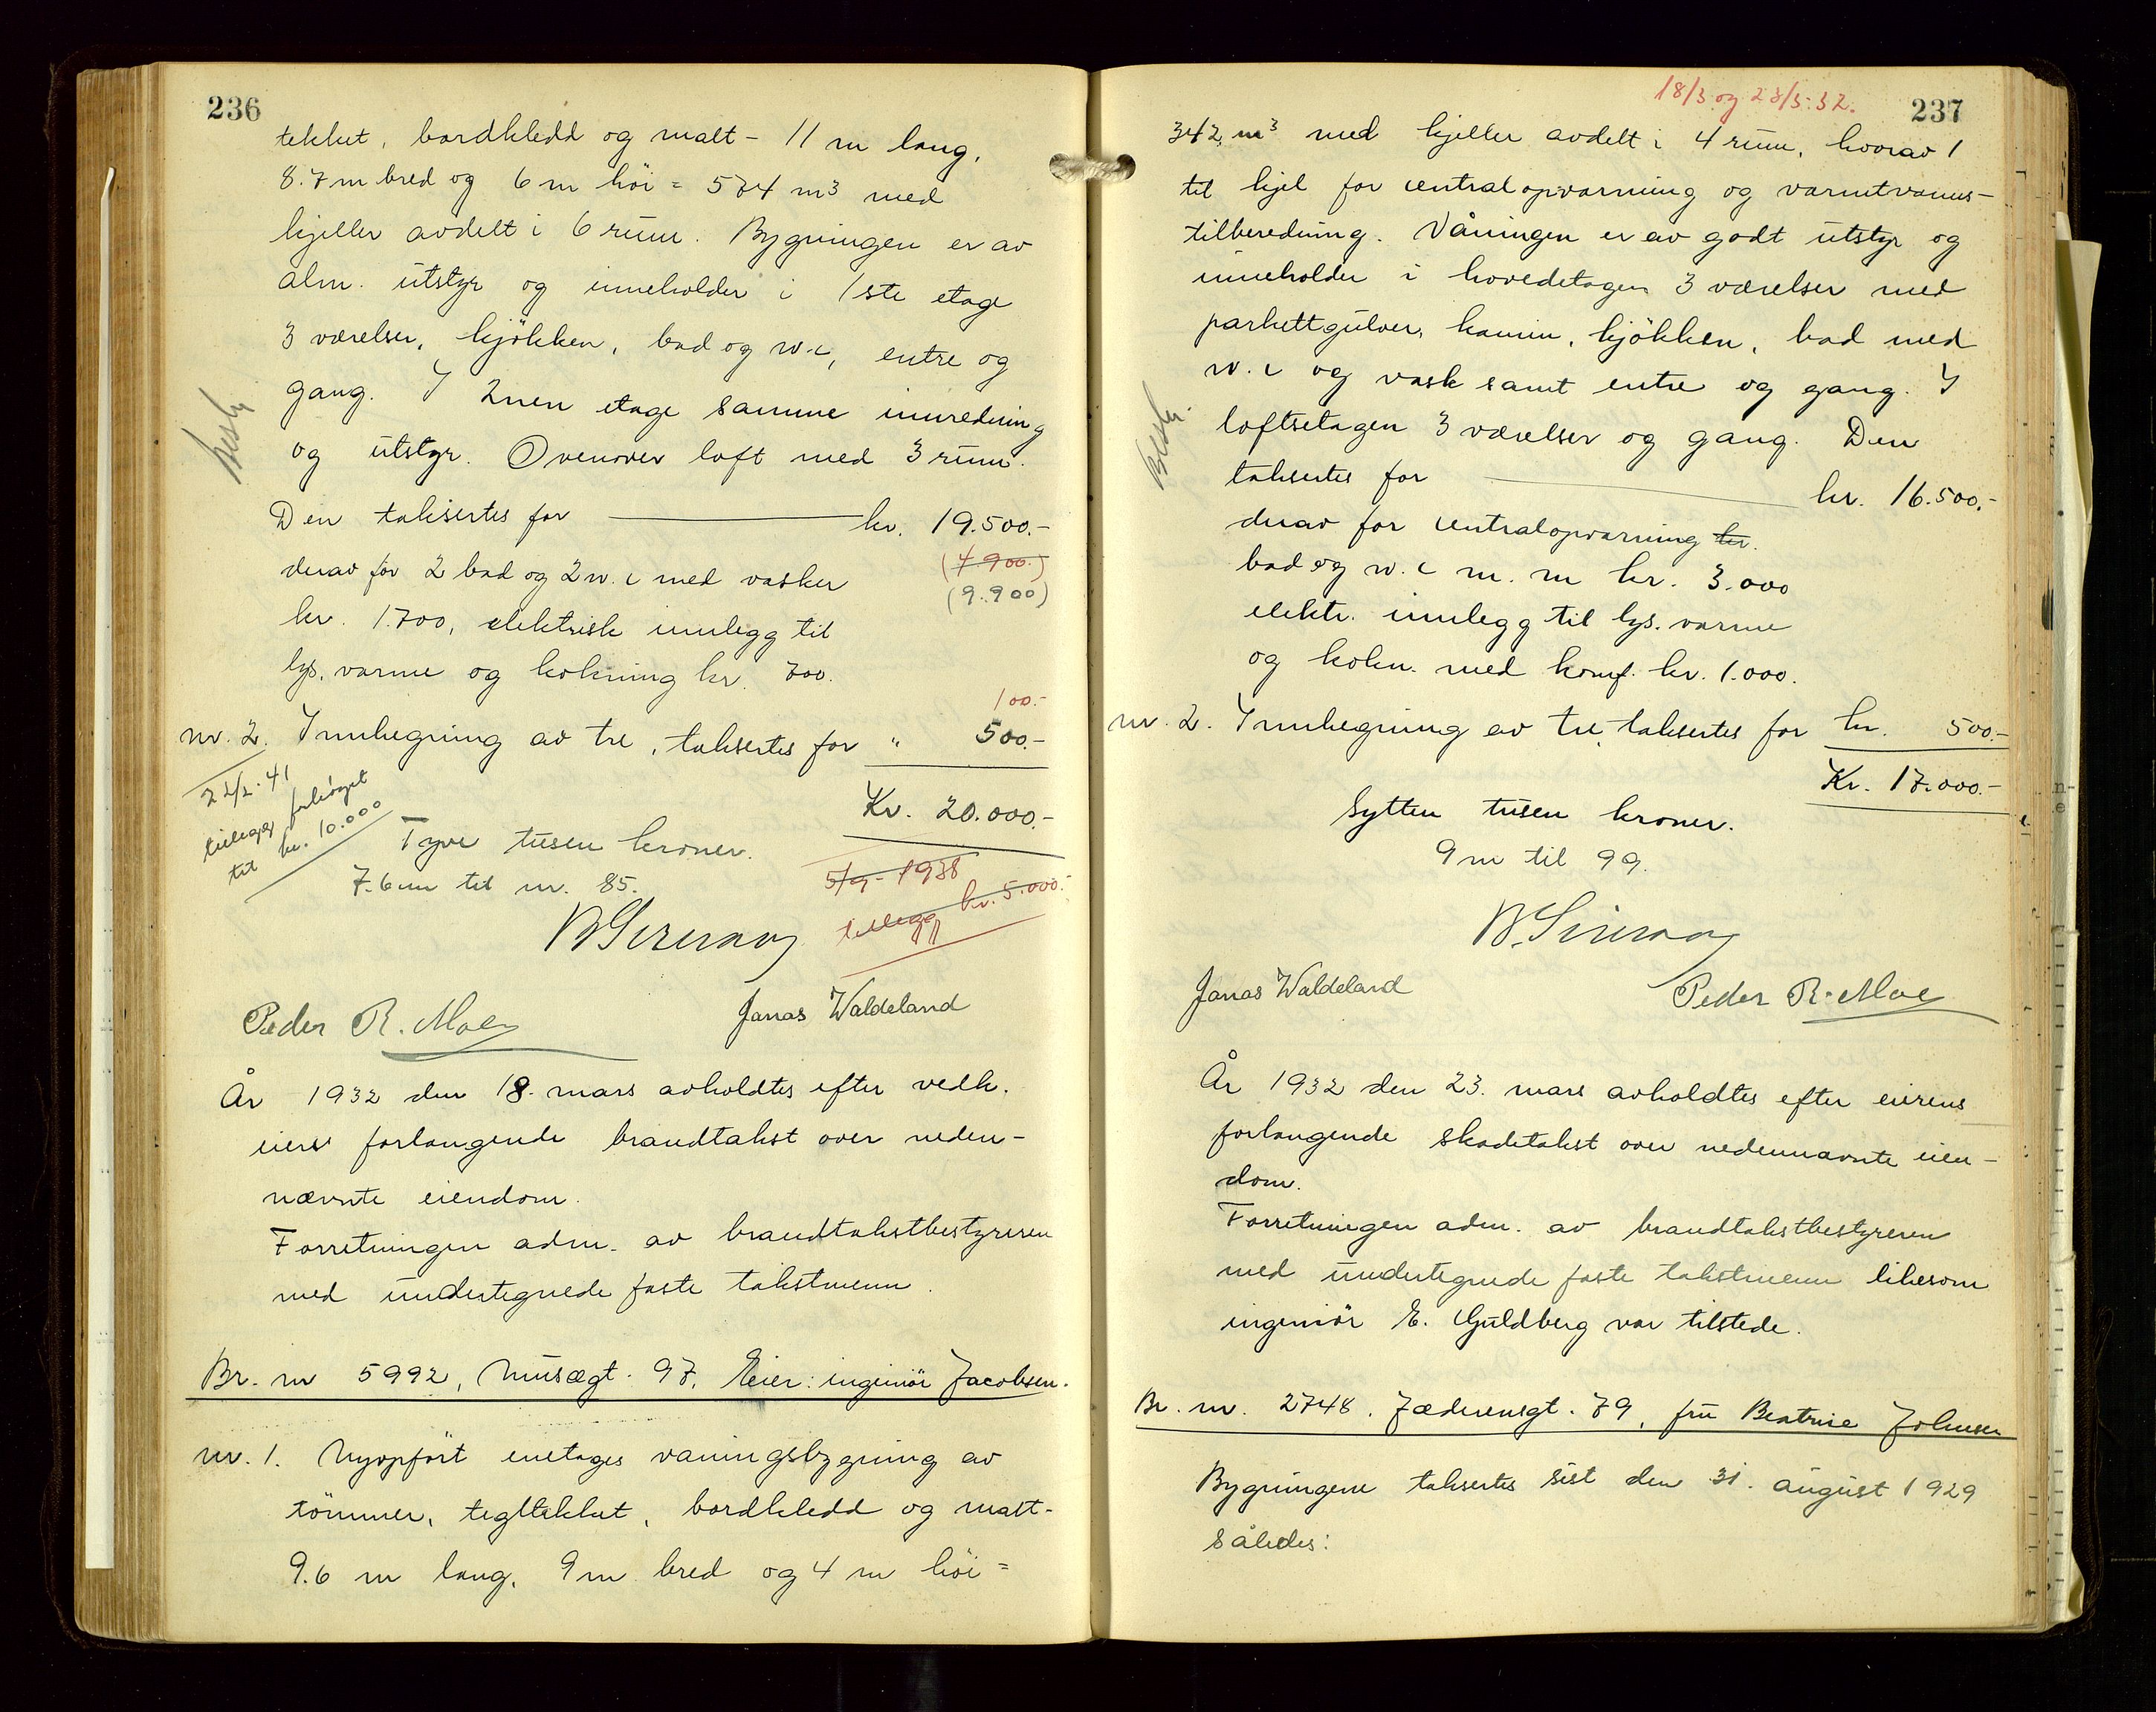 236
tekket, bordkledd og malt - 11 m lang,
8.7 m bred og 6 m höi = 574 m3 med
kjeller avdelt i 6 rum. Bygningen er av
alm. utstyr og inneholder i 1ste etage
3 værelser, kjökken, bad og w.c, entre og
gang. I 2nen etage samme innredning
og utstyr. Ovenover loft med 3 rum.
Den taksertes for kr. 19.500.-
(4900.)
derav for 2 bad og 2 w.c med vasker
(9.900)
kr. 1.700, elektrisk innlegg til
lys, varme og kokning kr. 700.
100.-
nr. 2. Innhegning av tre, taksertes for " 500.-
22/2.41
tillegg forhöyet
til kr. 10.000
Kr. 20.000.-
Tyve tusen kroner.
7.6 m til nr. 85.
5/9 - 1938
tillegg kr. 5.000.-
Peder R. Moe
Jonas Waldeland
År 1932 den 18. mars avholdtes efter vedk.
eiers forlangende brandtakst over neden-
nævnte eiendom.
Forretningen adm. av brandtakstbestyreren
med undertegnede faste takstmenn.
Br. nr 5992, Musægt. 97, Eier: ingeniör Jacobsen.
nr. 1. Nyopfört enetages våningsbygning av
tömmer, tegltekket, bordkledd og malt-
9.6 m lang, 9 m bred og 4 m höi =
18/3 og 23/3.32.
237
342 m3 med kjeller avdelt i 4 rum, hvorav 1
til kjel for centralopvarming og varmtvanns-
tilberedning. Våningen er av godt utstyr og
inneholder i hovedetagen 3 værelser med
parkettgulver, kamin, kjökken, bad med
w.c og vask samt entre og gang. I
loftsetagen 3 værelser og gang. Den
taksertes for kr. 16.500.-
derav for centralopvarming kr.
bad og w.c m.m kr. 3.000
elektr. innlegg til lys, varme
og kokn. med komf. kr. 1.000.
nr. 2. Innhegning av tre, taksertes for kr. 500.-
Kr. 17.000.-
Sytten tusen kroner.
9 m til 99.
Jonas Waldeland
Peder R. Moe
År 1932 den 23. mars avholdtes efter eierens
forlangende skadetakst over nedennævnte eien-
dom.
Forretningen adm. av brandtakstbestyreren
med undertegnede faste takstmenn likesom
ingeniör E. Guldberg var tilstede.
Br. nr. 2748, Jæderensgt. 79, fru Beatrice Johnsen
Bygningene taksertes sist den 31. august 1929
således: